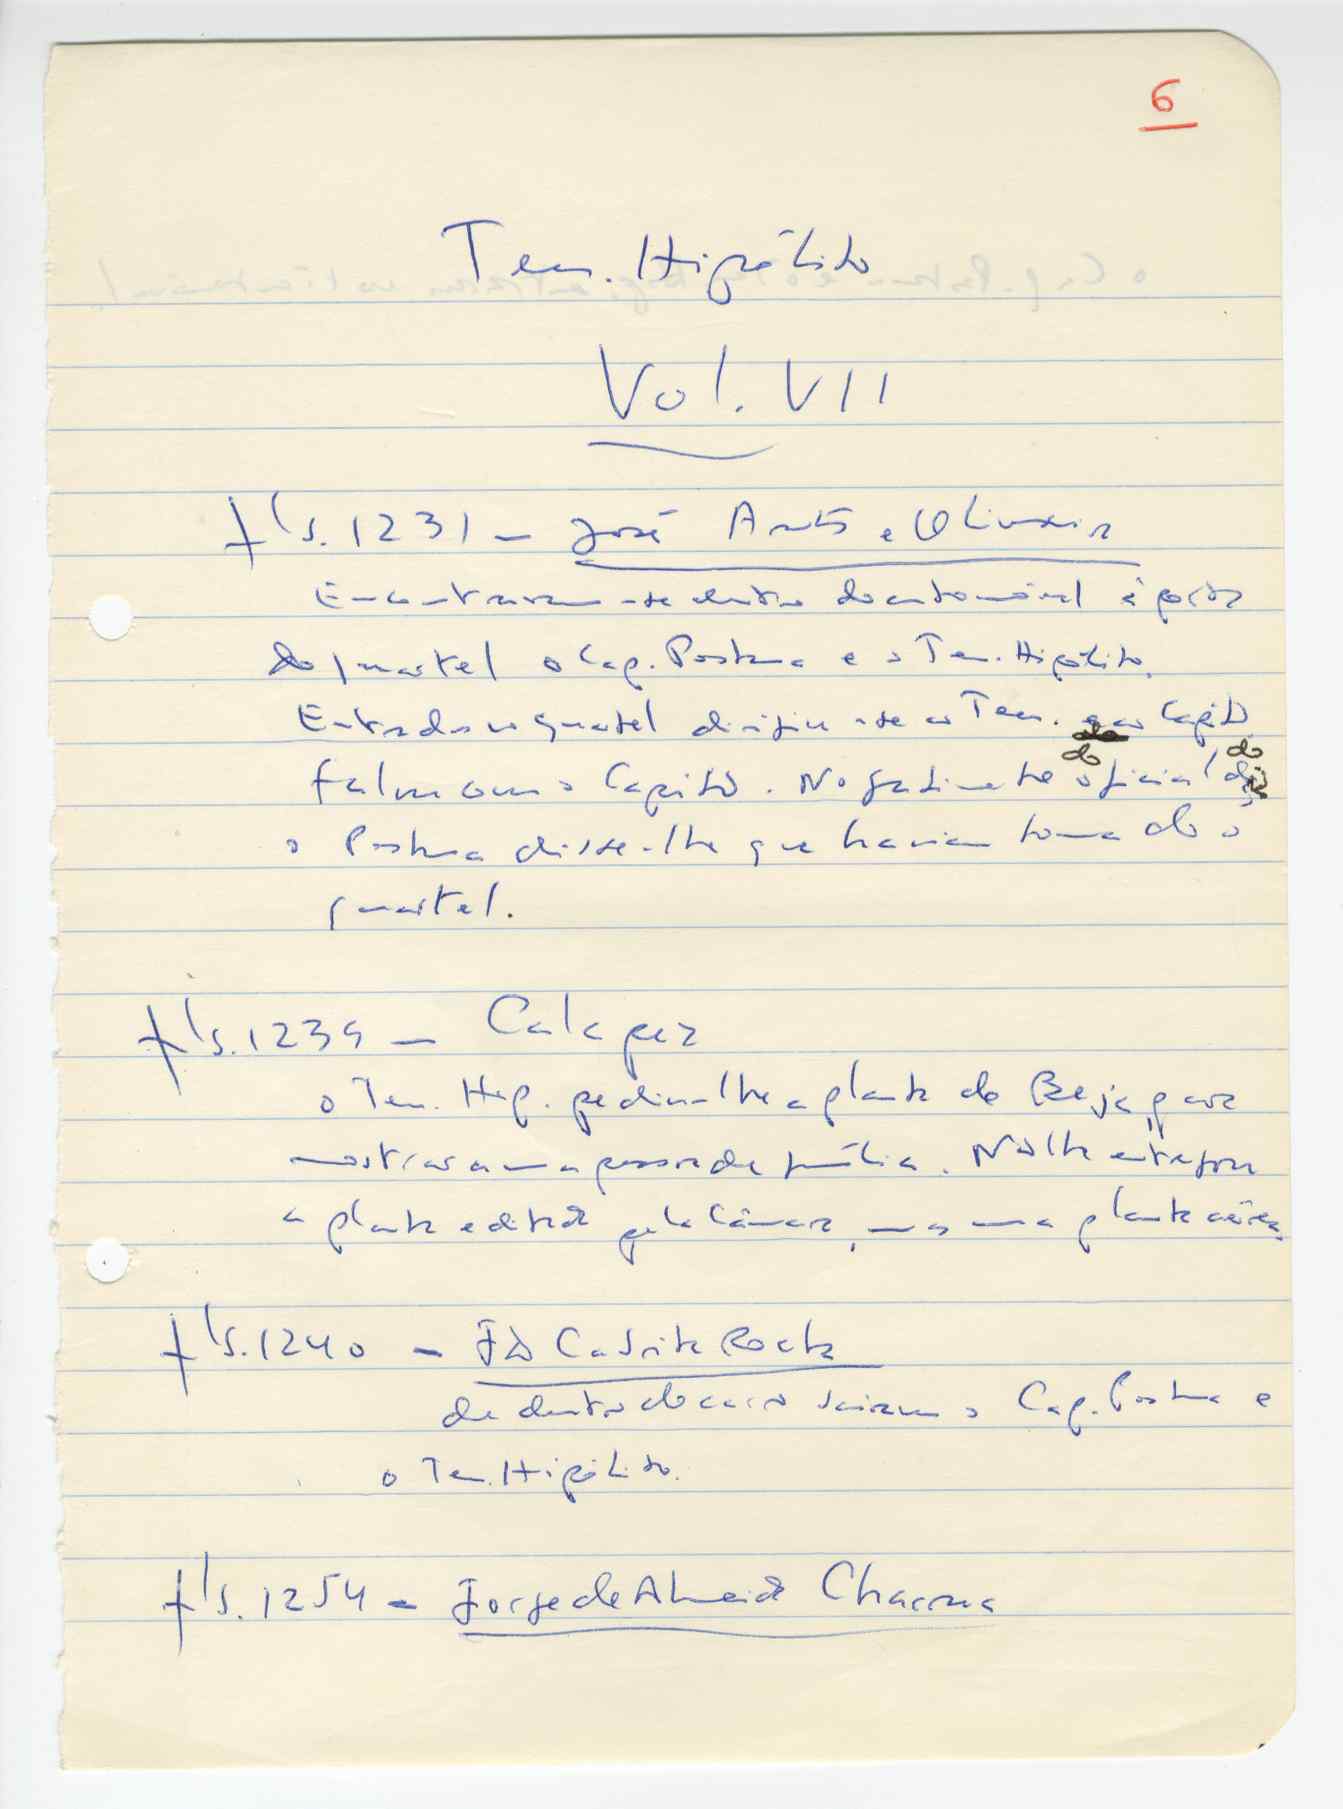 6
Ten. Hipólito
Vol. VII
fls. 1231 - José Antº e Oliveira
Encontravam-se dentro do automóvel à porta
do quartel o Cap. Pestana e o Ten. Hipólito.
Entrados no quartel dirigiu-se ao Ten. Capitão
falar com o Capitão. No gabinete do oficial do
o Pestana disse-lhe que haviam tomado o
quartel.
fls. 1239 - Calapez
o Ten. Hip. pediu-lhe a planta de Beja para
mostrar a uma pessoa de família. Não lhe entregou
a planta editada pela Câmara, mas uma planta aérea.
fls. 1240 - Rocha
de dentro do carro saíram o Cap. Pestana e
o Ten. Hipólito.
fls. 1254 - Jorge de Almeida